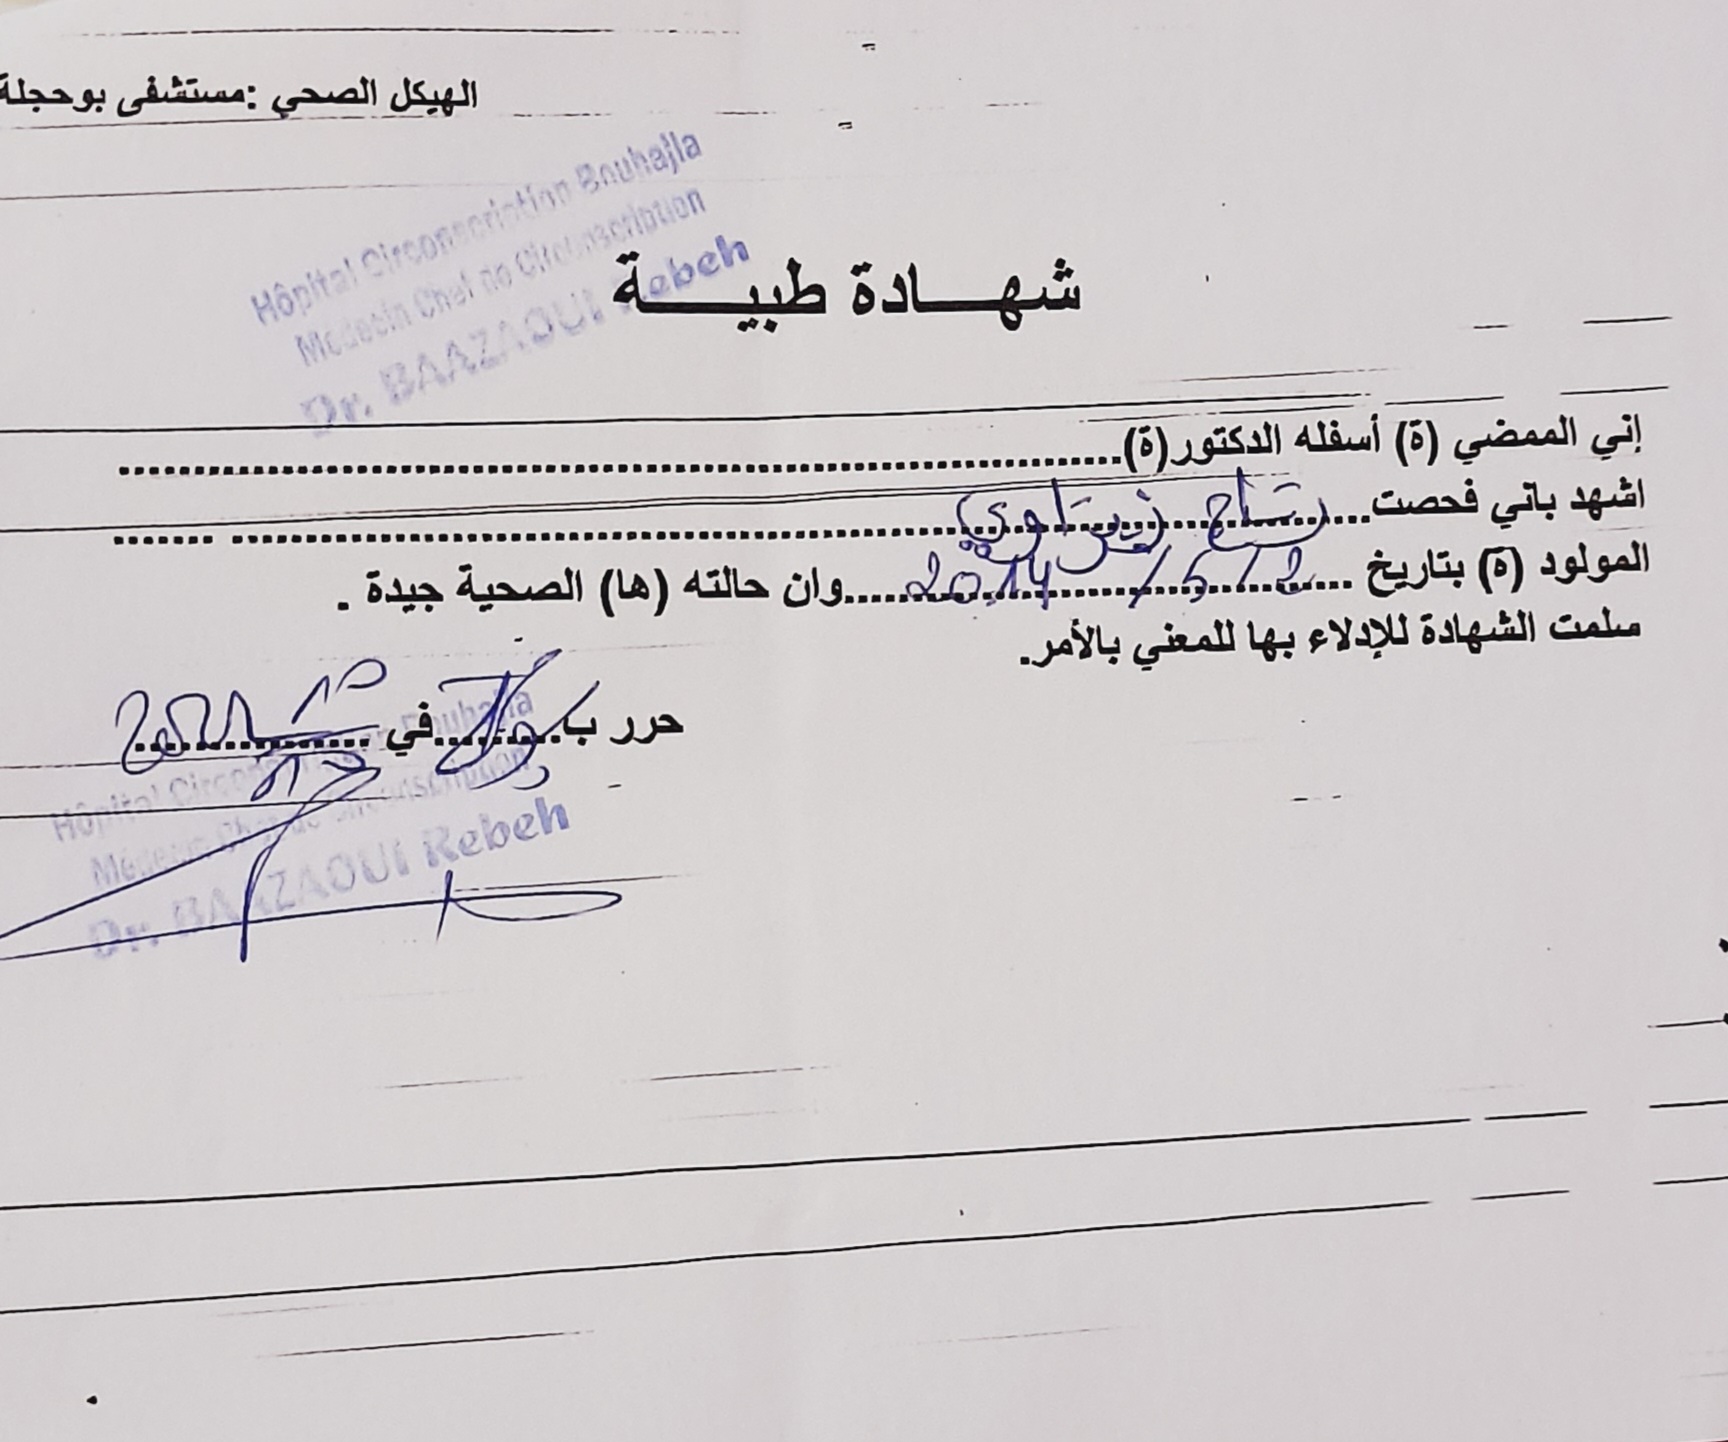 الهيكل الصحي :مستشفى بوحجلة
Hôpital Circonscription Bouhajla
Médecin Chef de Circonscription
Dr. BAAZAOUI Rebeh
شهـــادة طبيـــة
إني الممضي (ة) أسفله الدكتور(ة)........................................
اشهد باني فحصت........................................
المولود (ة) بتاريخ ....2/5/2014....وان حالته (ها) الصحية جيدة .
سلمت الشهادة للإدلاء بها للمعني بالأمر.
حرر ب.........في ................
Hôpital Circonscription Bouhajla
Médecin Chef de Circonscription
Dr. BAAZAOUI Rebeh